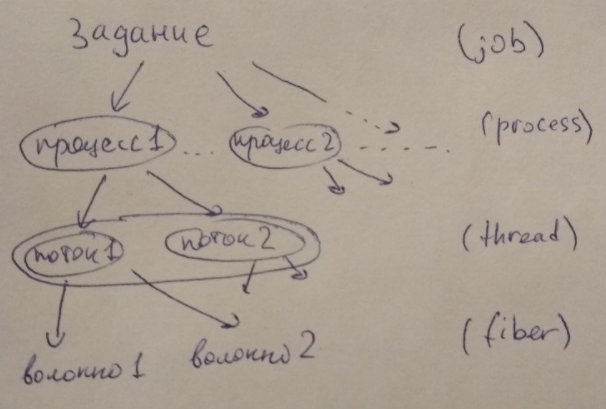 Задание (job)
процесс 1 ... процесс 2 (process)
поток 1 поток 2 (thread)
волокно 1 волокно 2 (fiber)